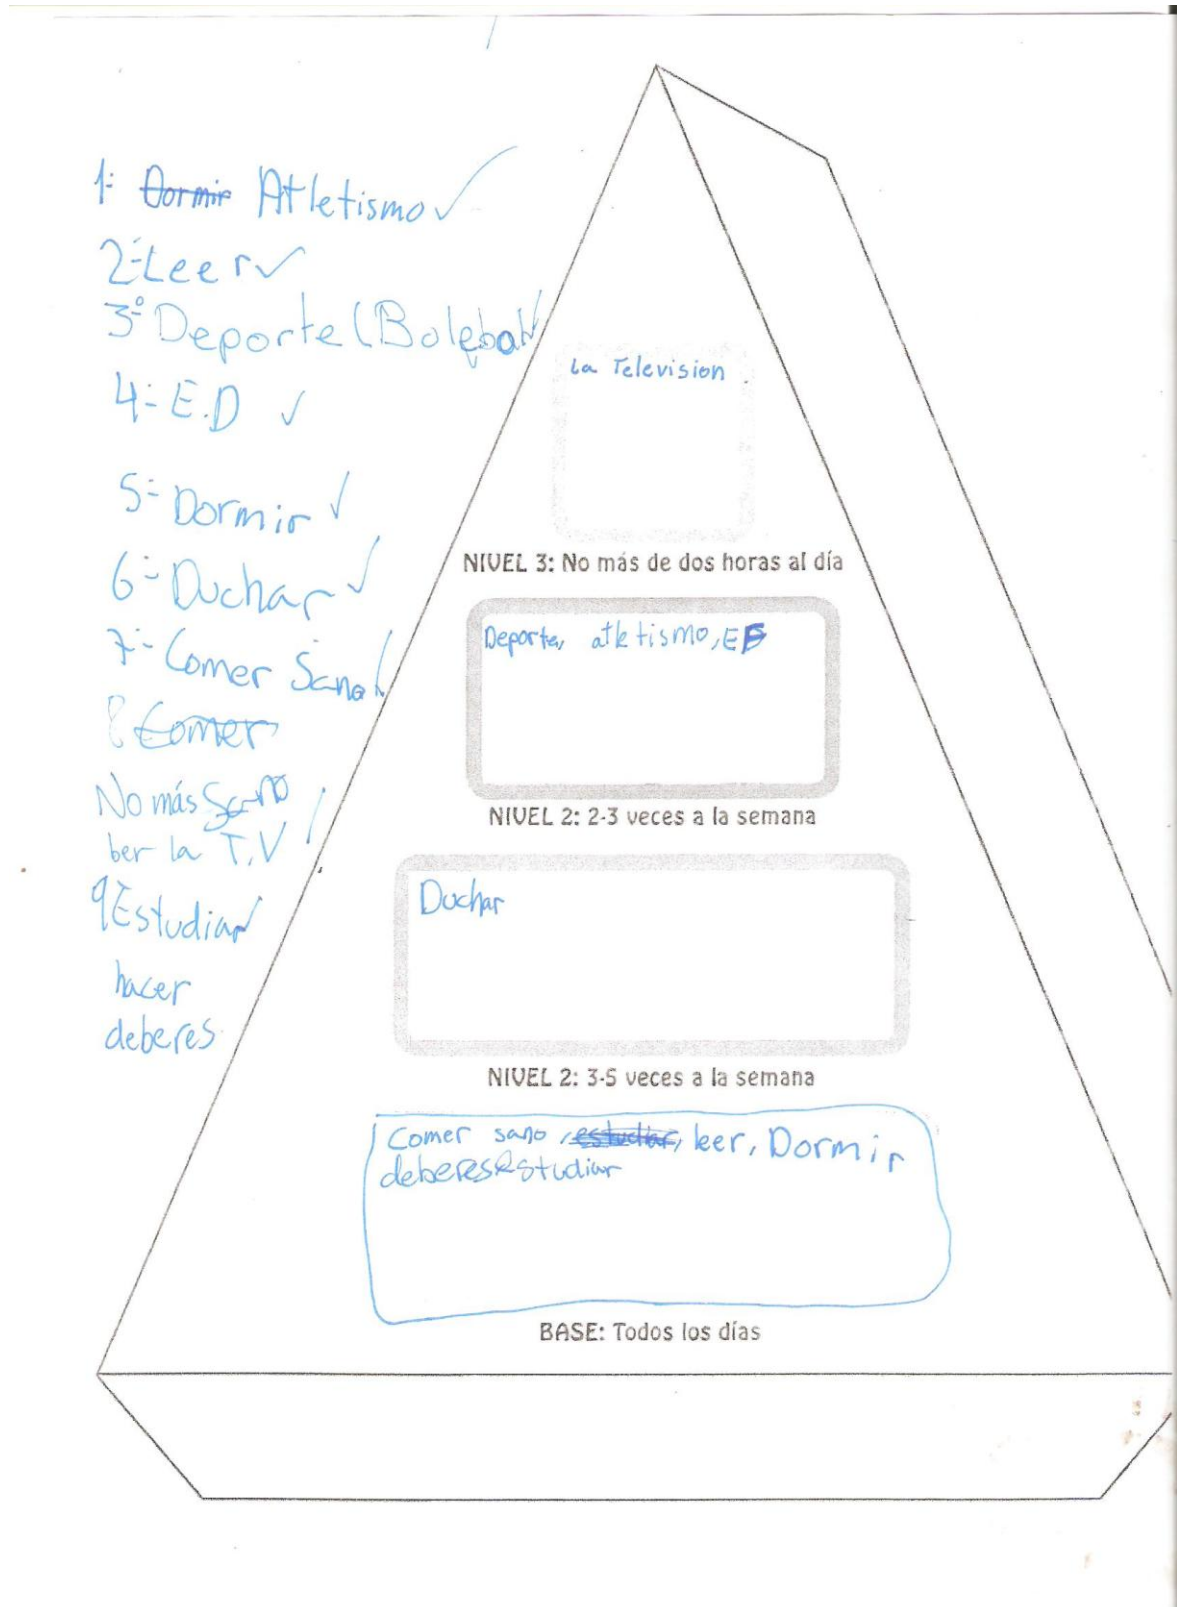 1- Dormir Atletismo ✓
2- Leer ✓
3º Deporte (Bolebol ✓
4- E.D ✓
5- Dormir ✓
6- Duchar ✓
7- Comer Sano ✓
8 Comer
No más Sano
ber la T.V
9 Estudiar ✓
hacer
deberes
La Television
NIVEL 3: No más de dos horas al día
Deporte, atletismo, E
NIVEL 2: 2-3 veces a la semana
Duchar
NIVEL 2: 3-5 veces a la semana
Comer sano, estudiar, leer, Dormir
deberes estudiar
BASE: Todos los días